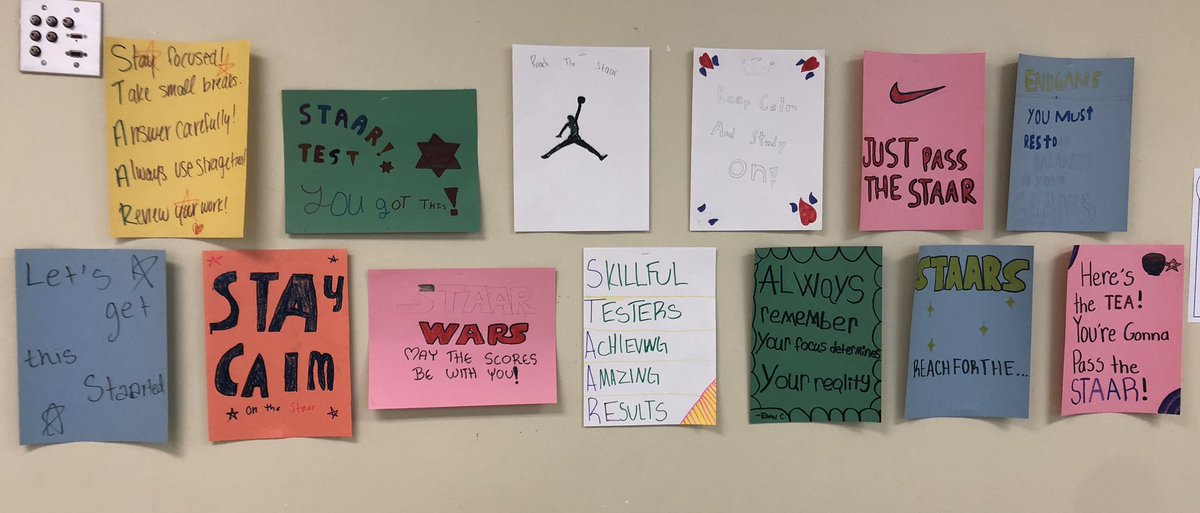 Stay focused!
Take small breaks.
Answer carefully!
Always use
Review your work!
STAAR!
TEST
YOU gOT THIS!
Reach The Staar
Keep Calm
And Study
On!
JUST PASS
THE STAAR
ENDGAME
YOU MUST
RESTORE
BALANCE
YOUR
GRADES
Let's
get
this
Staarted
STAY
CAlM
on the Staar
STAAR
WARS
MAY THE SCORES
BE WITH YOU!
SKILLFUL
TESTERS
ACHIEVING
AMAZING
RESULTS
ALWAYS
remember
Your focus determines
Your reality
-EVAN C.
STAARS
REACH FOR THE...
Here's
the TEA!
You're Gonna
Pass the
STAAR!